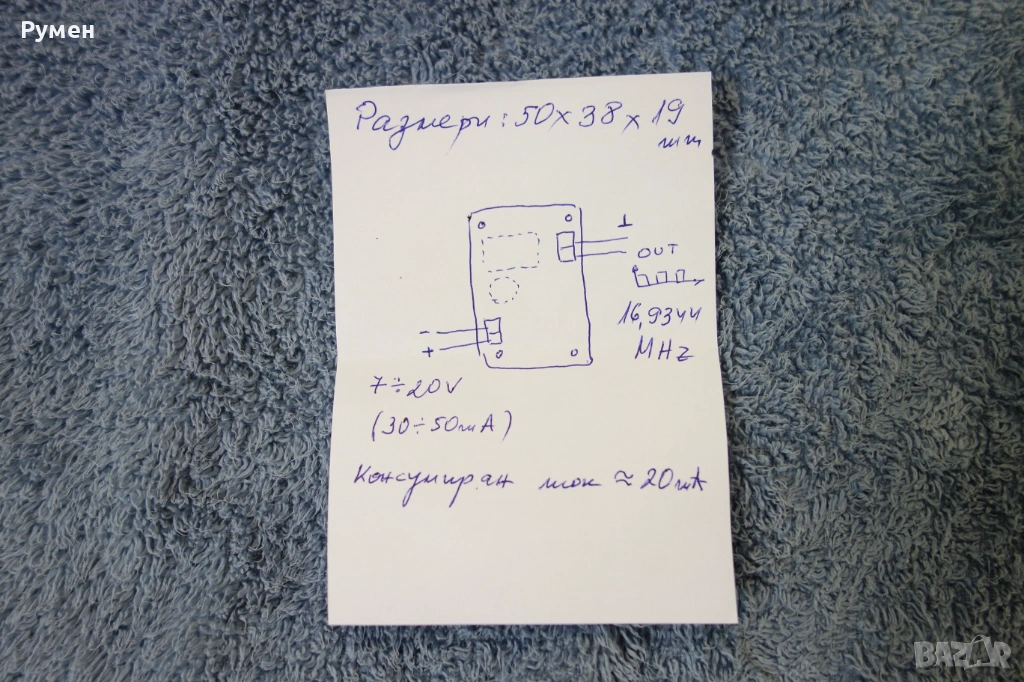 Румен
Размери: 50 x 38 x 19
mm
⊥
OUT
-
+
16,9344
MHz
7÷20V
(30÷50mA)
Консумиран ток ≈ 20mA
BAZAR